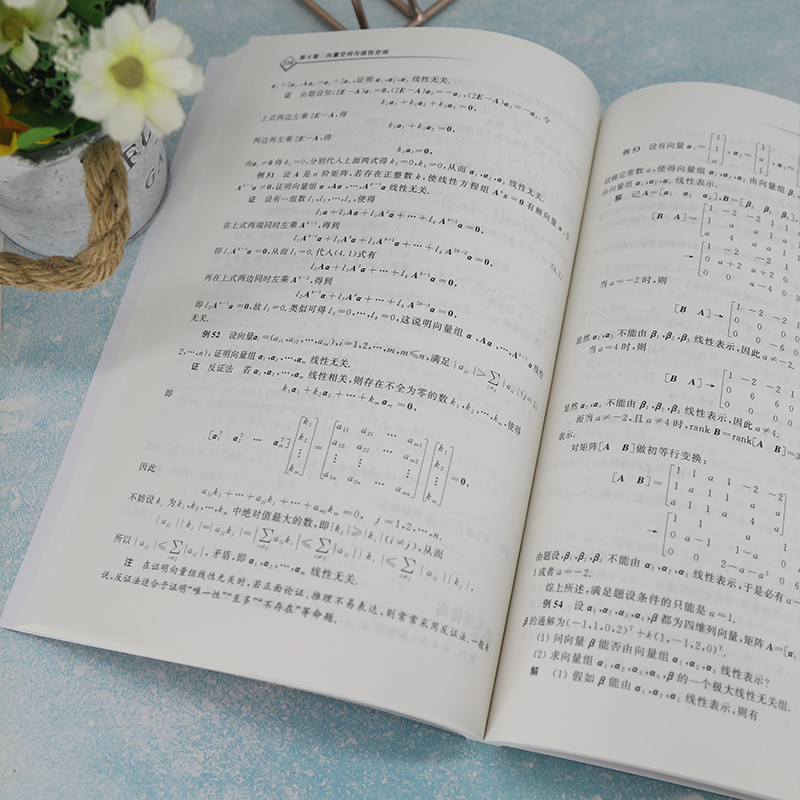 118 第4章 向量空间与线性空间
α₁+2α₂, Aα₃=α₂+2α₃, 证明 α₁,α₂,α₃ 线性无关.
证 由题设知(2E−A)α₁=0,(2E−A)α₂=−α₁,(2E−A)α₃=−α₂. 令
k₁α₁+k₂α₂+k₃α₃=0,
上式两边左乘 2E−A, 得
k₂α₁+k₃α₂=0,
两边再左乘 2E−A, 得
k₃α₁=0,
由α₁≠0得k₃=0, 分别代入上面两式得k₂=0,k₁=0, 从而α₁,α₂,α₃ 线性无关.
例 51 设 A 是 n 阶矩阵, 若存在正整数 k, 使线性方程组 Aᵏx=0 有解向量 α, 且
Aᵏ⁻¹α≠0, 证明向量组 α,Aα,⋯,Aᵏ⁻¹α 线性无关.
证 设有一组数 l₁,l₂,⋯,lₖ, 使得
l₁α+l₂Aα+l₃A²α+⋯+lₖAᵏ⁻¹α=0,
在上式两端同时左乘 Aᵏ⁻¹, 得到
l₁Aᵏ⁻¹α+l₂Aᵏα+l₃Aᵏ⁺¹α+⋯+lₖA²ᵏ⁻²α=0, (4.1)
即 l₁Aᵏ⁻¹α=0, 从而 l₁=0. 代入(4.1)式有
l₂Aα+l₃A²α+⋯+lₖAᵏ⁻¹α=0,
再在上式两边同时左乘 Aᵏ⁻², 得到
l₂Aᵏ⁻¹α+l₃Aᵏα+⋯+lₖA²ᵏ⁻³α=0,
即 l₂Aᵏ⁻¹α=0, 故 l₂=0. 类似可得 l₃=0,⋯,lₖ=0, 这说明向量组 α,Aα,⋯,Aᵏ⁻¹α 线性
无关.
例 52 设向量αᵢ=(aᵢ₁,aᵢ₂,⋯,aᵢₙ), i=1,2,⋯,m, m≤n, 满足|aⱼⱼ|>∑_{i≠j}|aᵢⱼ|(j=1,
2,⋯,n), 证明向量组 α₁,α₂,⋯,αₘ 线性无关.
证 反证法 若 α₁,α₂,⋯,αₘ 线性相关, 则存在不全为零的数 k₁,k₂,⋯,kₘ, 使得
k₁α₁+k₂α₂+⋯+kₘαₘ=0,
即
[α₁ᵀ α₂ᵀ ⋯ αₘᵀ][k₁ k₂ ⋮ kₘ]=[a₁₁ a₂₁ ⋯ aₘ₁; a₁₂ a₂₂ ⋯ aₘ₂; ⋮ ⋮ ⋮; a₁ₙ a₂ₙ ⋯ aₘₙ][k₁ k₂ ⋮ kₘ]=0,
因此
a₁ⱼk₁+⋯+aⱼⱼkⱼ+⋯+aₘⱼkₘ=0, j=1,2,⋯,n.
不妨设 kⱼ 为 k₁,k₂,⋯,kₘ 中绝对值最大的数, 即|kⱼ|≥|kᵢ|(i≠j), 从而
|aⱼⱼ||kⱼ|=|aⱼⱼkⱼ|=|∑_{i≠j}aᵢⱼkᵢ|≤∑_{i≠j}|aᵢⱼ||kᵢ|≤∑_{i≠j}|aᵢⱼ||kⱼ|,
所以|aⱼⱼ|≤∑_{i≠j}|aᵢⱼ|, 矛盾, 即 α₁,α₂,⋯,αₘ 线性无关.
注 在证明向量组线性无关时, 若正面论证、推理不易表达, 则常常采用反证法. 一般来
说, 反证法适合于证明“唯一性”“至多”“不存在”等命题.
例 53 设有向量 α₁=[1 1 a], α₂=[1 a 1]
试确定常数 a, 使得向量组 α₁,α₂,α₃ 由向量组 β₁
由向量组 α₁,α₂,α₃ 线性表示.
解 记 A=[α₁ α₂ α₃], B=[β₁ β₂ β₃],
[B A]=
→
当 a=−2 时, 则
[B A]→
显然 α₂,α₃ 不能由 β₁,β₂,β₃ 线性表示, 因此 a≠−2.
当 a=4 时, 则
[B A]→
显然 α₂,α₃ 不能由 β₁,β₂,β₃ 线性表示, 因此 a≠4.
而当 a≠−2, 且 a≠4 时, rank B=rank[A B]=3
表示.
对矩阵[A B]做初等行变换:
[A B]=
→
由题设, β₁,β₂,β₃ 不能由 α₁,α₂,α₃ 线性表示, 于是必有 a−
1 或者 a=−2.
综上所述, 满足题设条件的只能是 a=1.
例 54 设 α₁,α₂,α₃,α₄,β 都为四维列向量, 矩阵 A=[α₁
β 的通解为(−1,1,0,2)ᵀ+k(1,−1,2,0)ᵀ.
(1) 问向量 β 能否由向量组 α₁,α₂,α₃ 线性表示?
(2) 求向量组 α₁,α₂,α₃,α₄,β 的一个极大线性无关组.
解 (1) 假如 β 能由 α₁,α₂,α₃ 线性表示, 则有